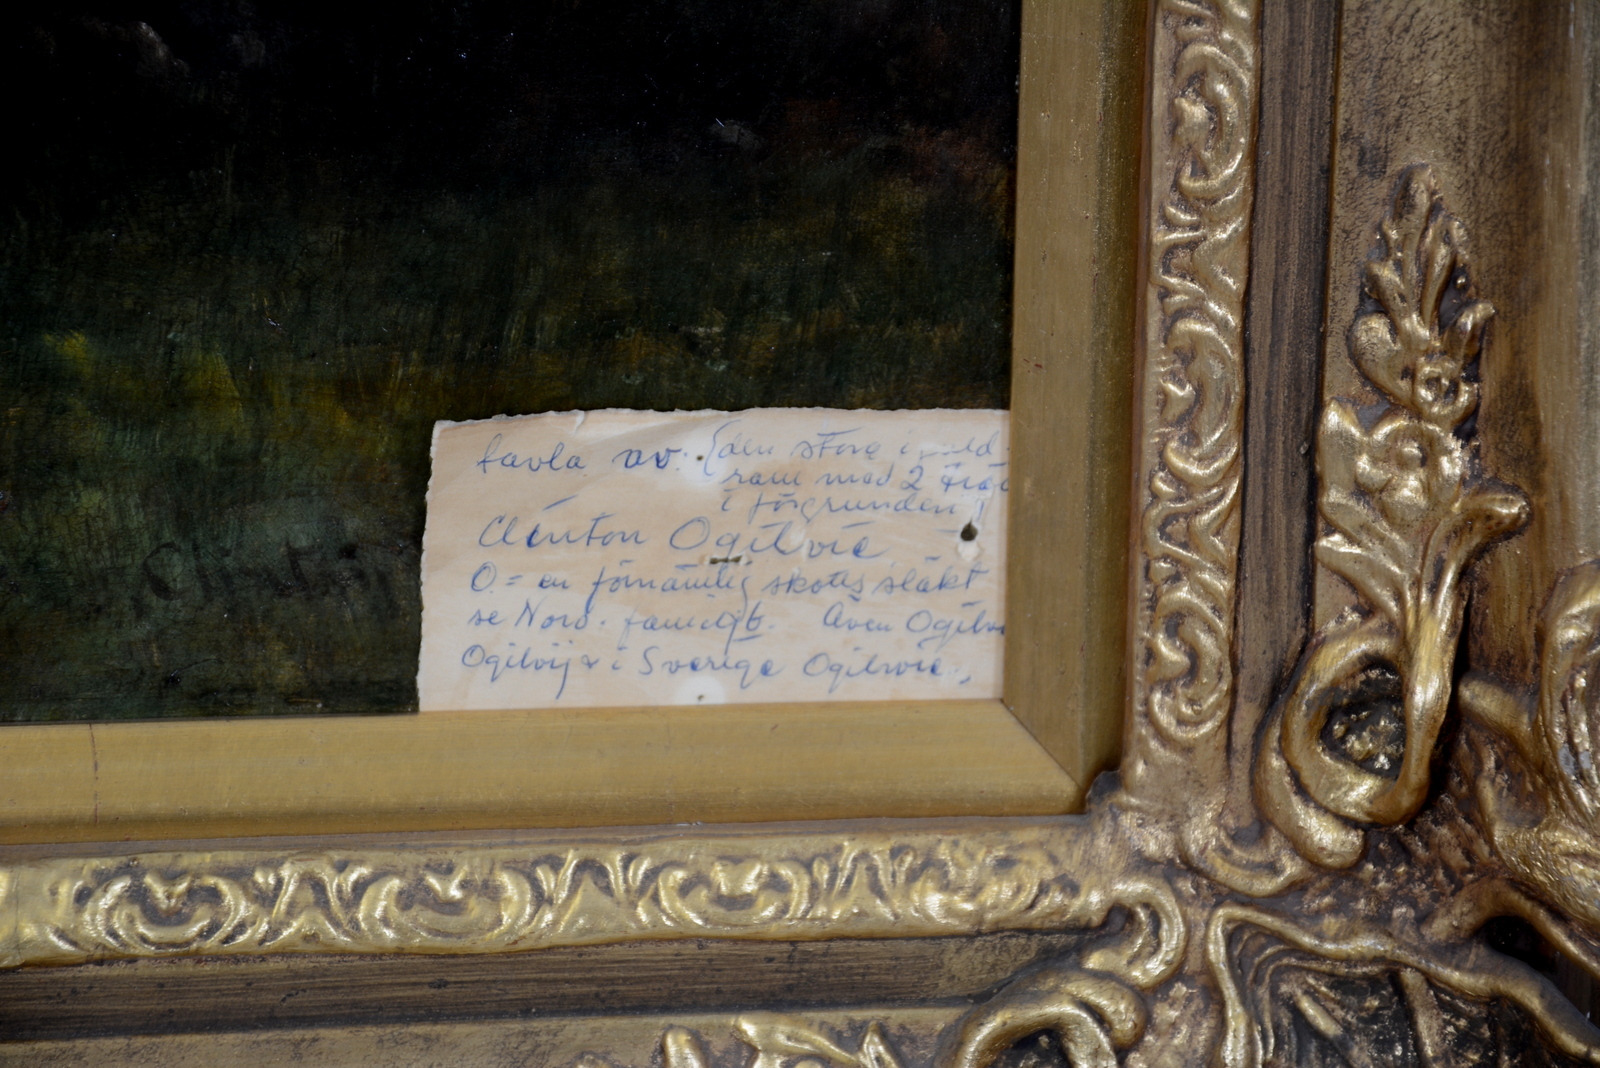 tavla av: (den stora i guld
ram med 2 träd
i förgrunden)!
Clinton Ogilvie
O. = en förnämlig skotts. släkt
se Nord. familjeb. Även Ogilvi
Ogilvij & i Sverige Ogilwie.
Clinton